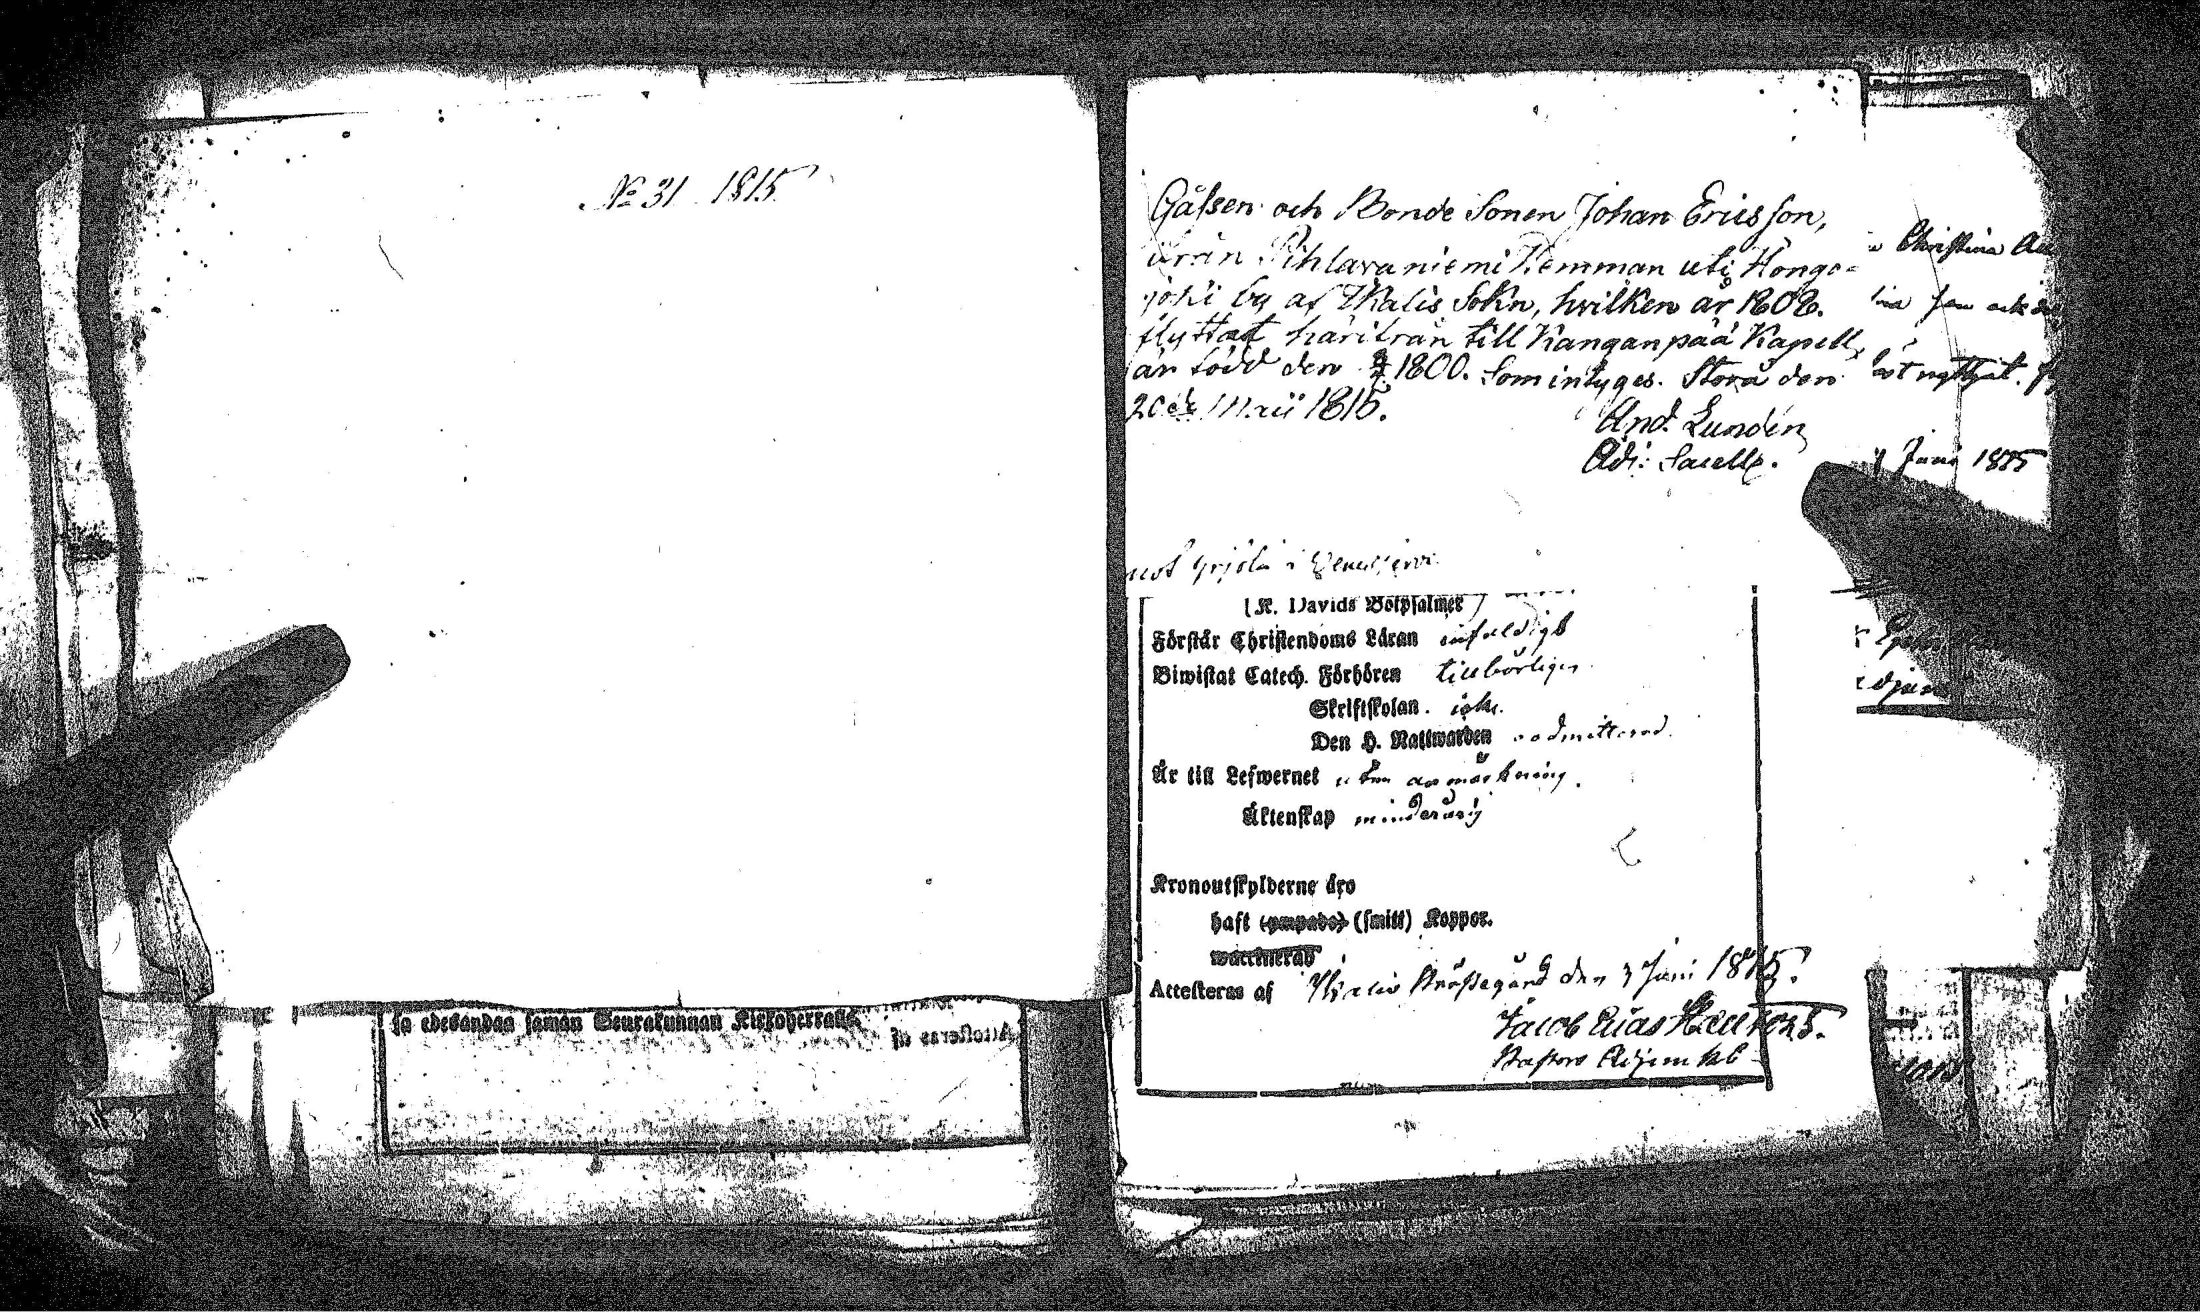 № 31 1815
Gåssen och Bonde Sonen Johan Ericsson,
ifrån Pihlavaniemi Hemman uti Hongo-
joki by af Ikalis Sokn, hvilken år 1808.
flyttat härifrån till Kanganpää Kapell,
är född den 1800. Som intyges. Storå den
20de Maii 1815.
And. Lundén
Adj: Sacell.
Christina
Juni 1815
(K. Davids Botpsalmer)
Förstår Christendoms Läran enfaldigt
Biwistat Catech. Förhören tillbörligen
Skriftskolan. icke.
Den H. Nattwarden oadmitterad.
Är till Lefwernet utan anmärkning.
Äktenskap minderårig
Kronoutskylderne äro
haft (ympade) (smitt) Koppor.
waccinerad
Attesteras af Ikalis Prästegård den 3 Juni 1815.
Jacob Elias
Pastors Adjunkt
ja edesandaa saman Seurakunnan Kirkoherralle
Attesteras af